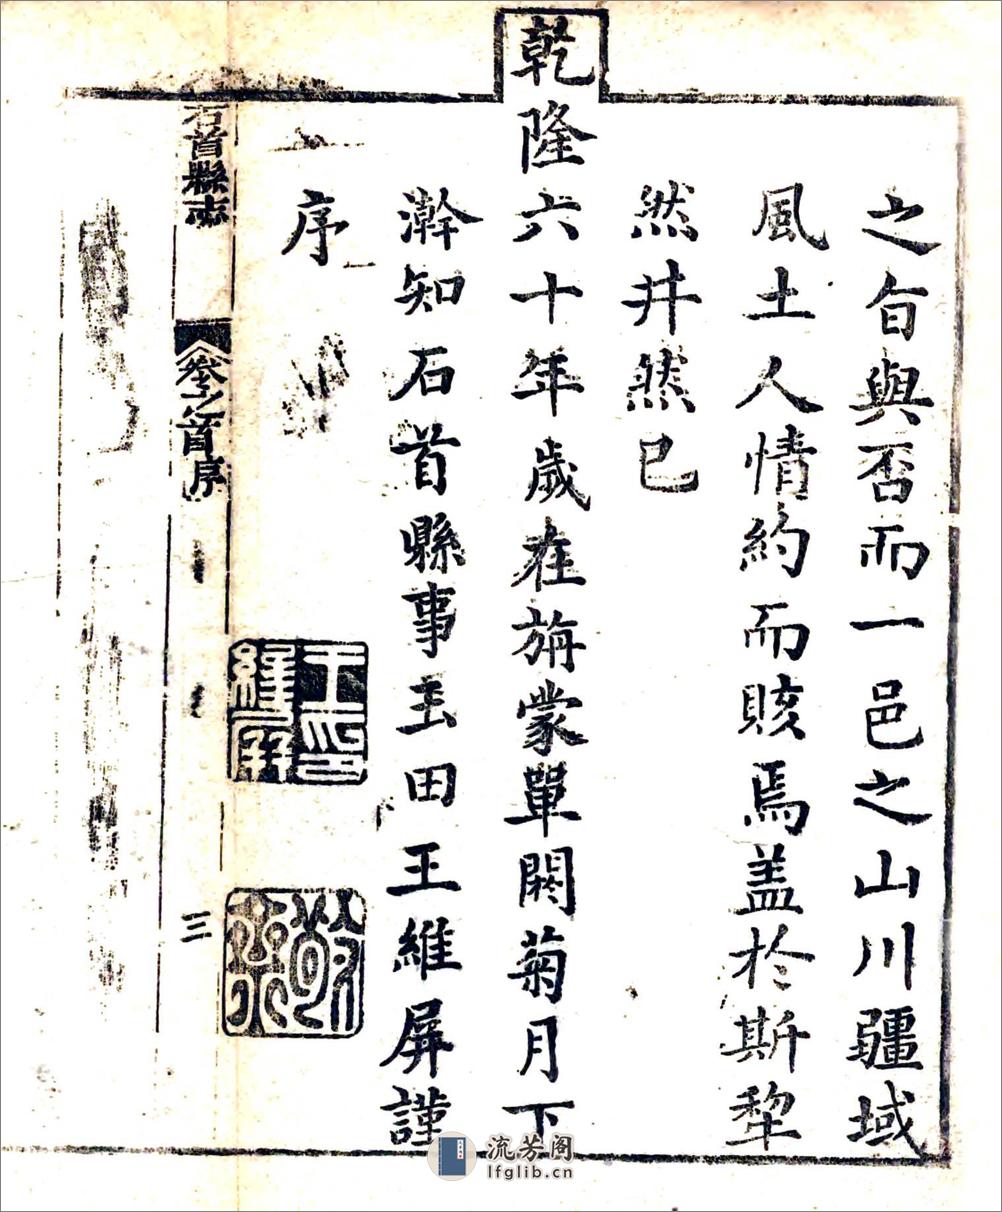 之旨與否而一邑之山川疆域
風土人情約而賅焉盖於斯犂
然井然已
乾隆六十年歲在旃蒙單閼菊月下
澣知石首縣事玉田王維屏謹
序
王印維屏
石首縣志
卷之首序
三
流芳阁
lfglib.cn